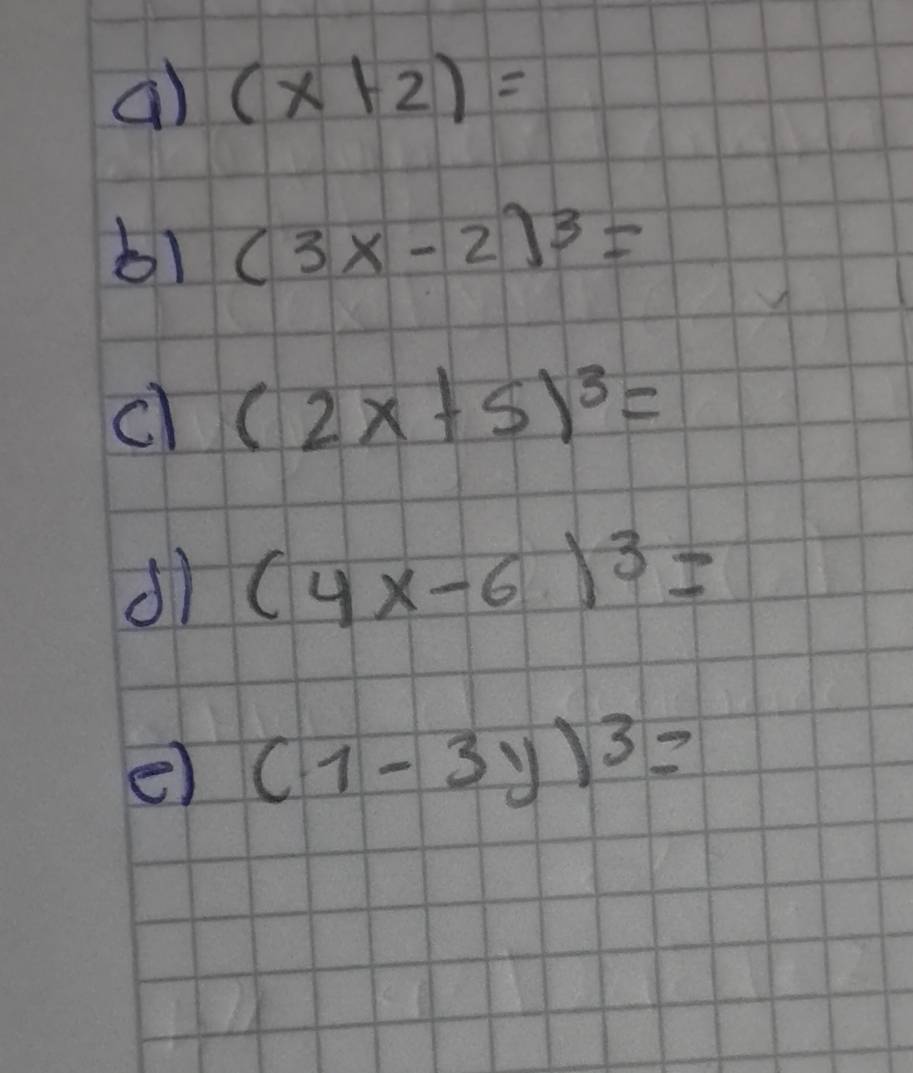 a) (x+2) =
b) (3x-2)³ =
c) (2x+5)³ =
d) (4x-6)³ =
e) (1-3y)³ =